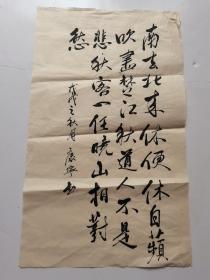 南去北来休便休白蘋
吹盡楚江秋道人不是
悲秋客一任晚山相對
愁
戊戌之秋月